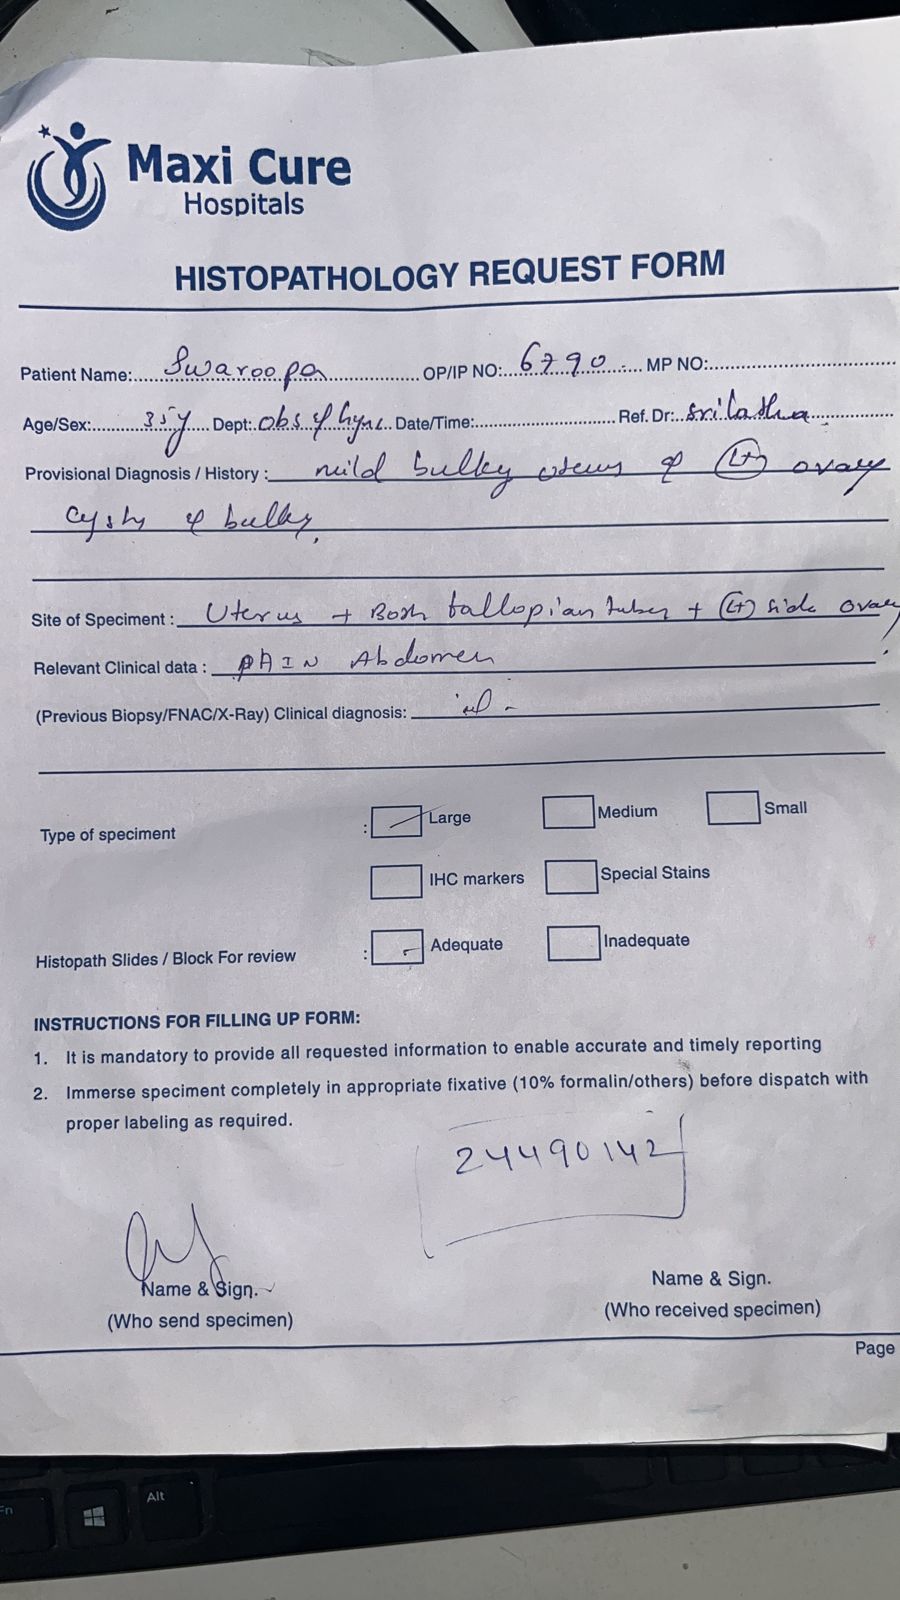 Maxi Cure
Hospitals
HISTOPATHOLOGY REQUEST FORM
Patient Name: Swaroopa OP/IP NO: 6790 MP NO:
Age/Sex: 35y Dept: obs & Gync Date/Time: Ref. Dr: Srilatha
Provisional Diagnosis / History : mild bulky uterus (Lt) ovary
bulky
Site of Speciment : Uterus + Both fallopian tubes + (Lt) side ovary
Relevant Clinical data : PAIN Abdomen
(Previous Biopsy/FNAC/X-Ray) Clinical diagnosis:
Type of speciment : Large Medium Small
IHC markers Special Stains
Histopath Slides / Block For review : Adequate Inadequate
INSTRUCTIONS FOR FILLING UP FORM:
1. It is mandatory to provide all requested information to enable accurate and timely reporting
2. Immerse speciment completely in appropriate fixative (10% formalin/others) before dispatch with
proper labeling as required.
24490142
Name & Sign.
(Who send specimen)
Name & Sign.
(Who received specimen)
Page
Fn
Alt